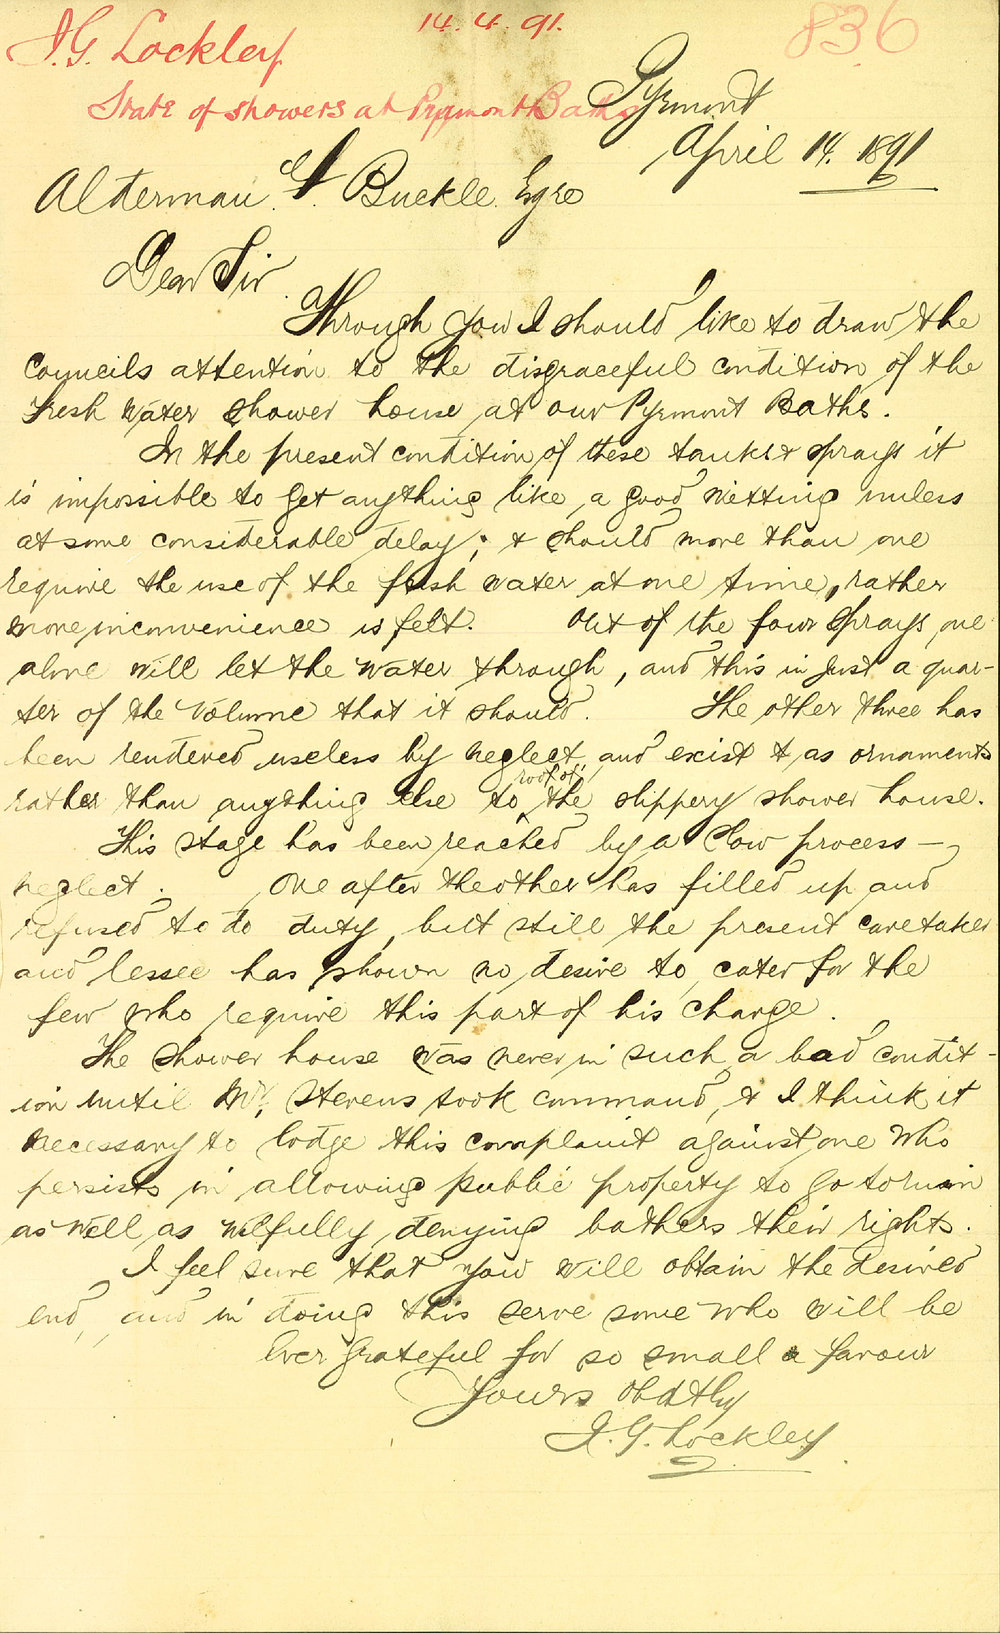 14.4.91.
836
J.G. Lockley
State of showers at Pyrmont Baths
Pyrmont
April 14. 1891
Alderman J. Buckle. Esqre
Dear Sir.
Through you I should like to draw the
Councils attention to the disgraceful condition of the
Fresh Water Shower house at our Pyrmont Baths.
In the present condition of these tanks & sprays it
is impossible to get anything like a good wetting unless
at some considerable delay; & should more than one
require the use of the fresh water at one time, rather
more inconvenience is felt. Out of the four Sprays one
alone will let the water through, and this in just a quar-
ter of the volume that it should. The other three has
been rendered useless by neglect, and exist & as ornaments
rather than anything else to the roof of the slippery shower house.
This stage has been reached by a slow process —
neglect. One after the other has filled up and
refused to do duty, but still the present caretaker
and lessee has shown no desire to cater for the
few who require this part of his charge.
The Shower house was never in such a bad condit-
ion until Mr. Stevens took command, & I think it
necessary to lodge this complaint against one who
persists in allowing public property to go to ruin
as well as wilfully denying bathers their rights.
I feel sure that you will obtain the desired
end, and in doing this serve some who will be
ever grateful for so small a favour
Yours Obdtly
J.G. Lockley